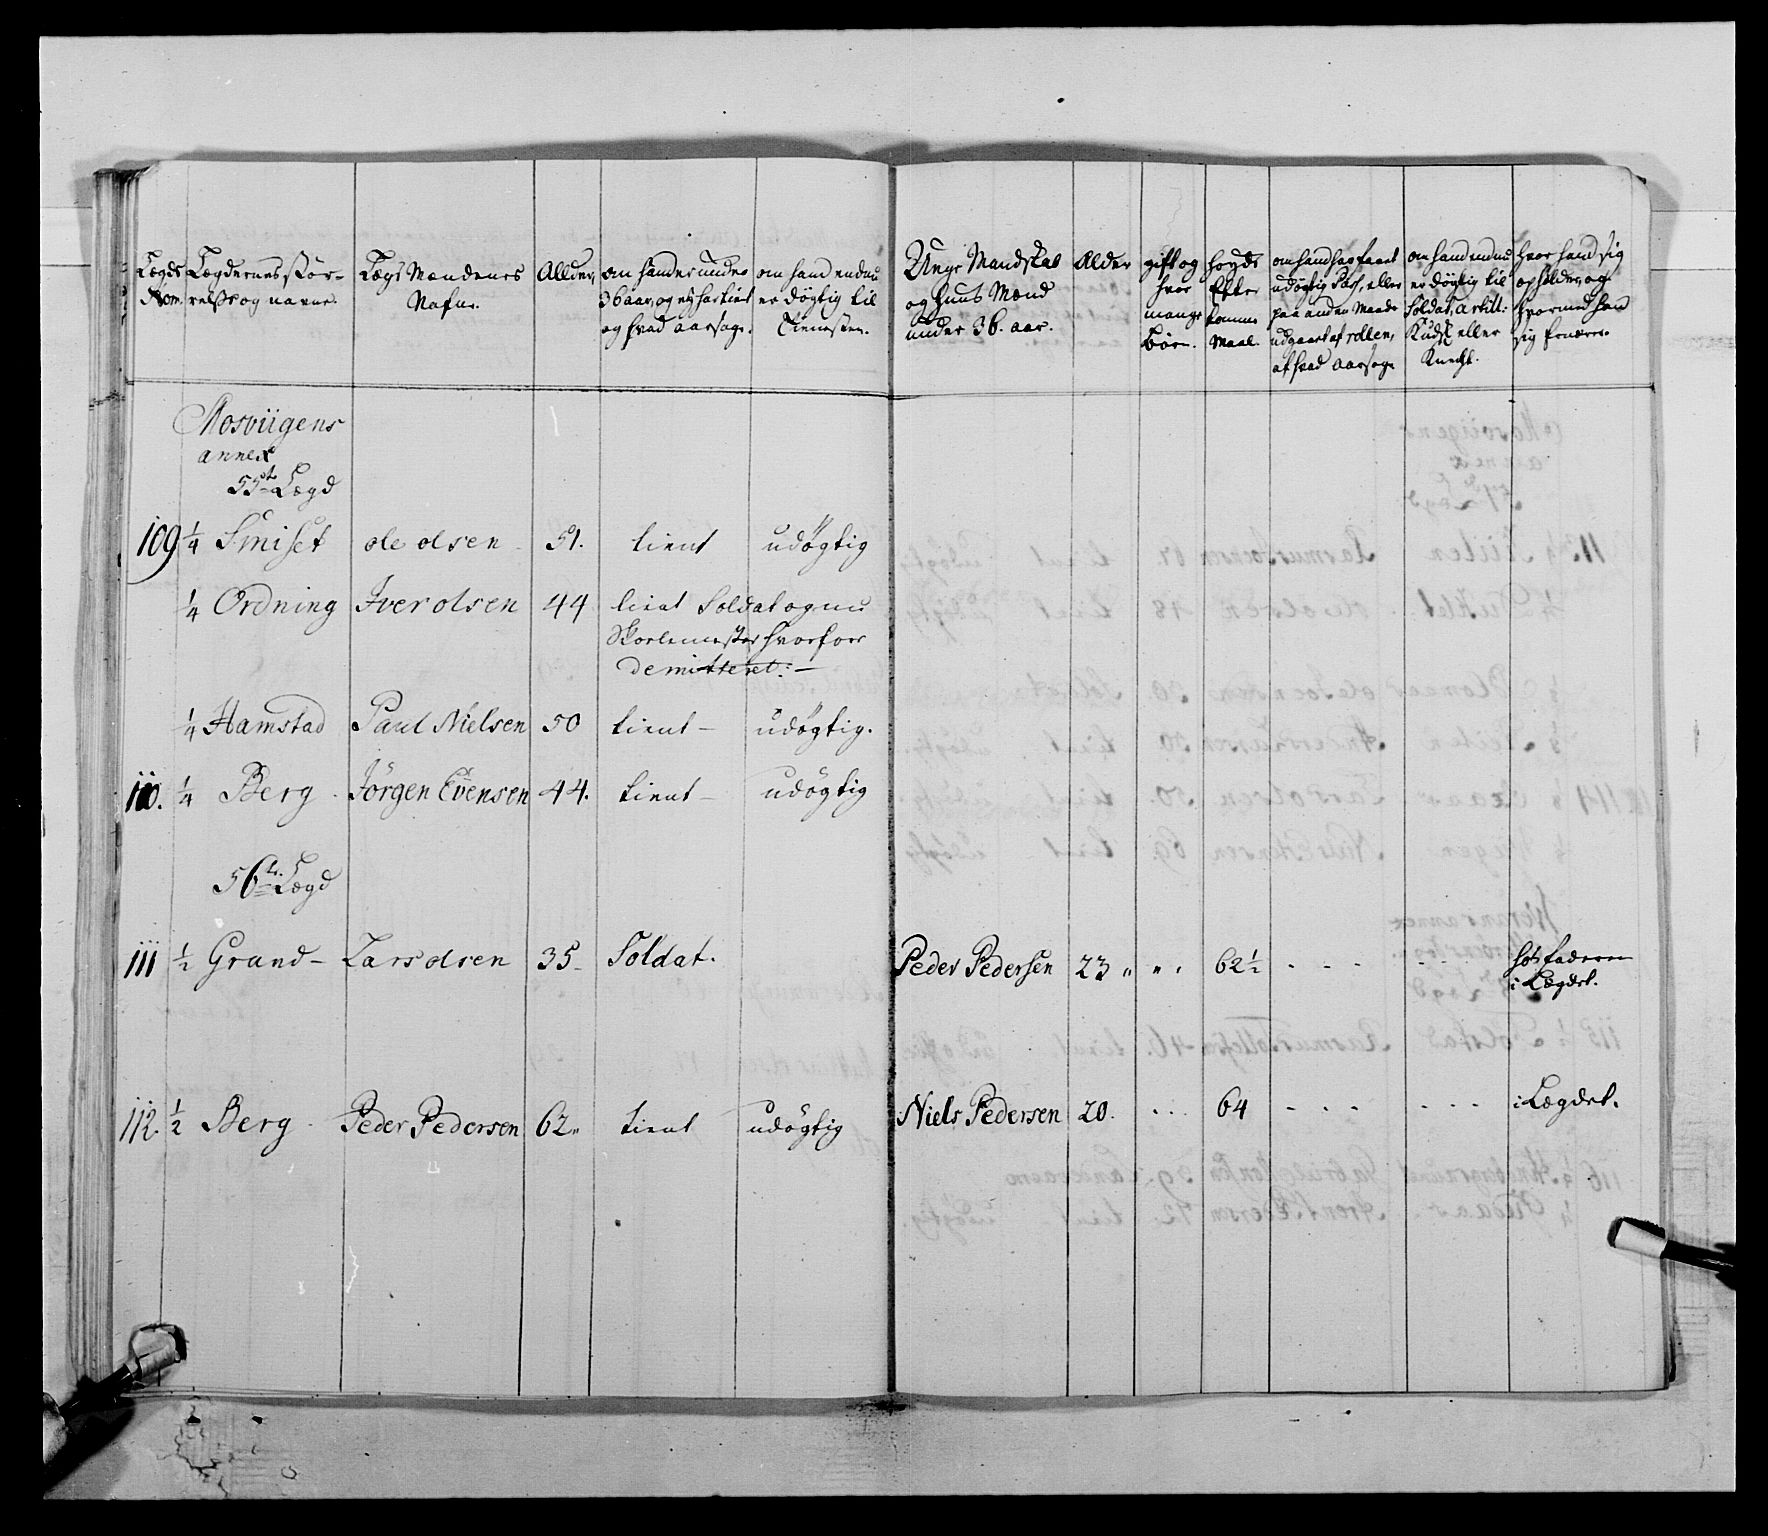 Lægds Nom.
Lægdernes stör-
relse og navne.
Lægs Mændenes
Nafne.
Allder,
om hand er under
36 aar, og ey har tient
og hvad aarsage.
om hand endnu
er døgtig til
Tienesten.
Unge Mandskab
og Huus Mænd
under 36. aar.
Alder
gift og
hvor
mange
børn.
høyde
Efter
tomme
Maal.
om hand har faaet
udøgtig Pass, eller
paa anden Maade
udgaaet af rollen,
af hvad aarsage
om hand endnu
er døgtig til
Soldat, artill:
Kudsk eller
Knecht.
hvor hand sig
opholder, og
hvormed hand
sig ernærer.
Mosviigens
annex
55te Lægd
109 1/4 Smiset ole olsen 51. tient udøgtig
1/4 Ordning Iver olsen 44 tient Soldat og nu
Skolemester hvorfor
demitteret. —
1/4 Hamstad Paul Nielsen 50 tient — udøgtig.
110. 1/4 Berg Jörgen Evensen 44. tient — udøgtig
56te Lægd
111 1/2 Grand — Lars olsen 35 Soldat. Peder Pedersen 23 " " " 62½ - - - - - - hos faderen
i Lægdet.
112 1/2 Berg Peder Pedersen 62 " tient udøgtig Niels Pedersen 20. - - - 64 - - - - - - i Lægdet.